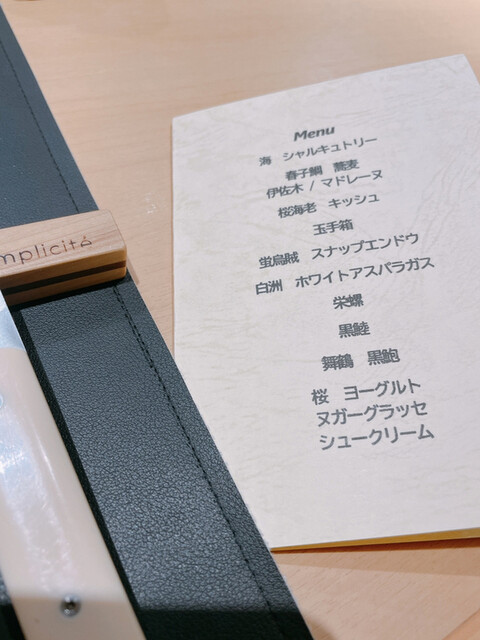 Menu
海 シャルキュトリー
春子鯛 蕎麦
伊佐木 / マドレーヌ
桜海老 キッシュ
玉手箱
蛍烏賊 スナップエンドウ
白洲 ホワイトアスパラガス
栄螺
黒鯥
舞鶴 黒鮑
桜 ヨーグルト
ヌガーグラッセ
シュークリーム
mplicité